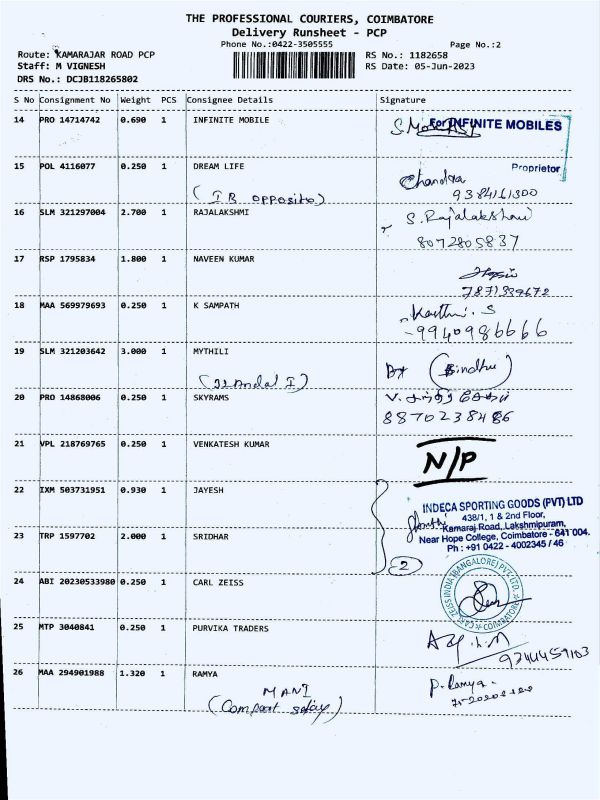 THE PROFESSIONAL COURIERS, COIMBATORE
Delivery Runsheet - PCP
Phone No.:0422-3505555
Page No.:2
Route: KAMARAJAR ROAD PCP
RS No.: 1182658
Staff: M VIGNESH
RS Date: 05-Jun-2023
DRS No.: DCJB118265802
S No Consignment No Weight PCS Consignee Details Signature
14 PRO 14714742 0.690 1 INFINITE MOBILE
For INFINITE MOBILES
15 POL 4116077 0.250 1 DREAM LIFE
Proprietor
Chandra
(I B opposite)
16 SLM 321297004 2.700 1 RAJALAKSHMI
S. Rajalakshmi
8072805837
17 RSP 1795834 1.800 1 NAVEEN KUMAR
18 MAA 569979693 0.250 1 K SAMPATH
Karthi. S
-9940986666
19 SLM 321203642 3.000 1 MYTHILI
(Bindhu)
20 PRO 14868006 0.250 1 SKYRAMS
8870238486
21 VPL 218769765 0.250 1 VENKATESH KUMAR
N/P
22 IXM 503731951 0.930 1 JAYESH
INDECA SPORTING GOODS (PVT) LTD
438/1, 1 & 2nd Floor,
Kamaraj Road, Lakshmipuram,
Near Hope College, Coimbatore - 641 004.
Ph : +91 0422 - 4002345 / 46
23 TRP 1597702 2.000 1 SRIDHAR
2
24 ABI 20230533980 0.250 1 CARL ZEISS
25 MTP 3040841 0.250 1 PURVIKA TRADERS
9744459103
26 MAA 294901988 1.320 1 RAMYA
P. Ramya.
MANI